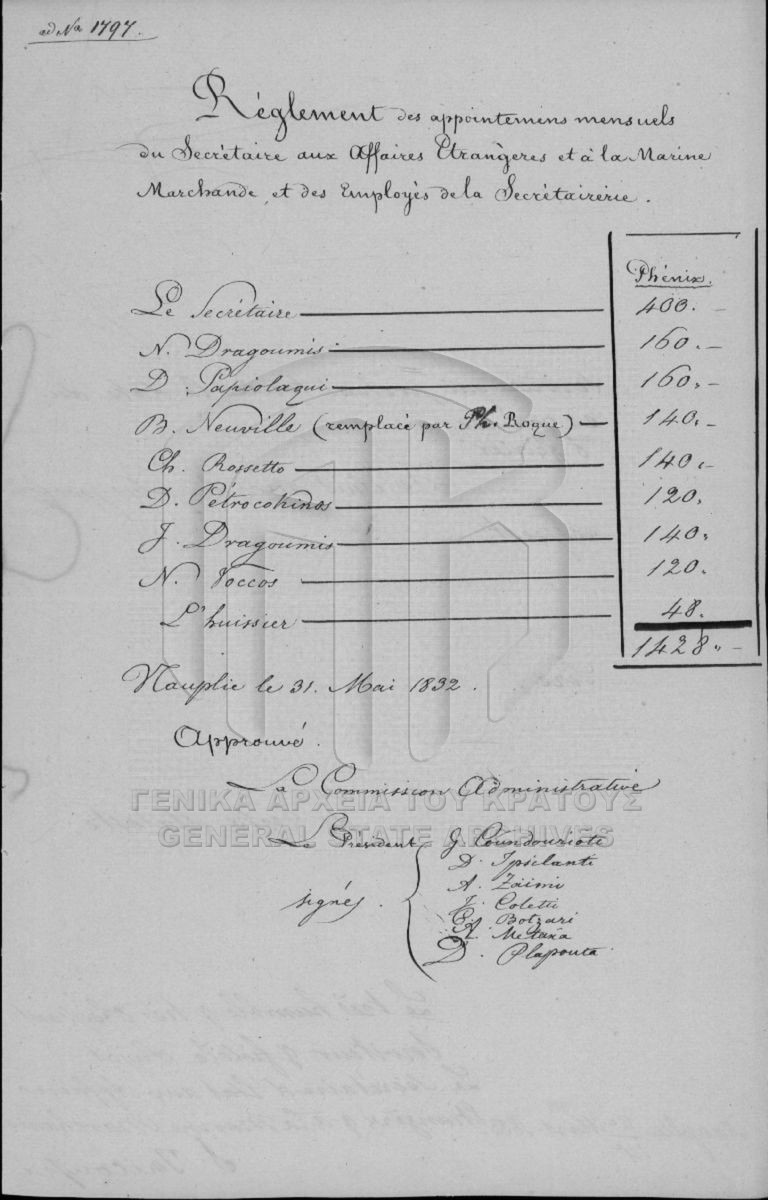 ad Nº 1797.
Réglement des appointemens mensuels
du Secrétaire aux Affaires Etrangères et à la Marine
Marchande, et des Employés de la Secrétairerie.
Phénix.
Le Secrétaire 400.
N. Dragoumis 160.
D. Papiolaqui 160.
B. Neuville (remplacé par Ph. Roque) 140.
Ch. Rossetto 140.
D. Pétrocokinos 120.
J. Dragoumis 140.
N. Voccos 120.
L'huissier 48.
1428.
Nauplie le 31. Mai 1832.
Approuvé.
La Commission Administrative
ΓΕΝΙΚΑ ΑΡΧΕΙΑ ΤΟΥ ΚΡΑΤΟΥΣ
GENERAL STATE ARCHIVES
Le Président G. Coundourioti
D. Ipsilanti
A. Zaimi
signés. J. Coletti
Botzari
A. Metaxa
D. Plapouta